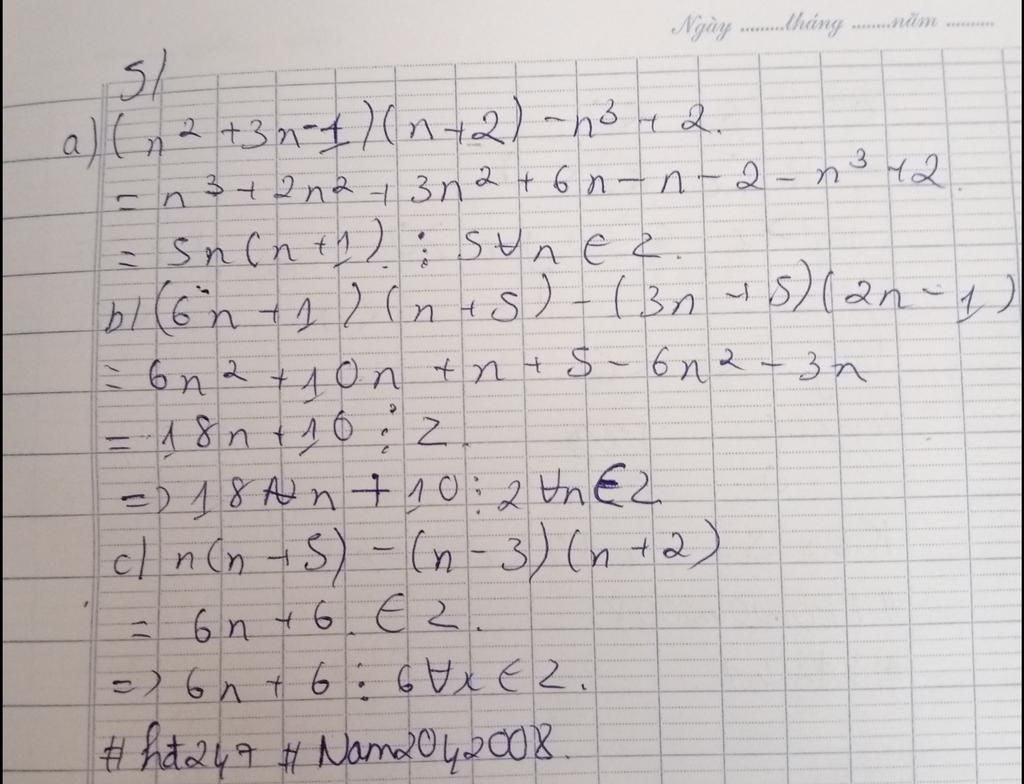 Ngày .........tháng ........năm ..........
5/
a) (n² + 3n - 1)(n + 2) - n³ + 2.
= n³ + 2n² + 3n² + 6n - n - 2 - n³ + 2
= 5n(n + 1) ⋮ 5 ∀ n ∈ Z.
b/ (6n + 1)(n + 5) - (3n + 5)(2n - 1)
= 6n² + 10n + n + 5 - 6n² - 3n
= 18n + 10 ⋮ 2.
=> 18 n + 10 ⋮ 2 ∀n ∈ Z
c/ n(n + 5) - (n - 3)(n + 2)
= 6n + 6. ∈ Z.
=> 6n + 6 ⋮ 6 ∀x ∈ Z.
# hđ247 # Nam2042008.